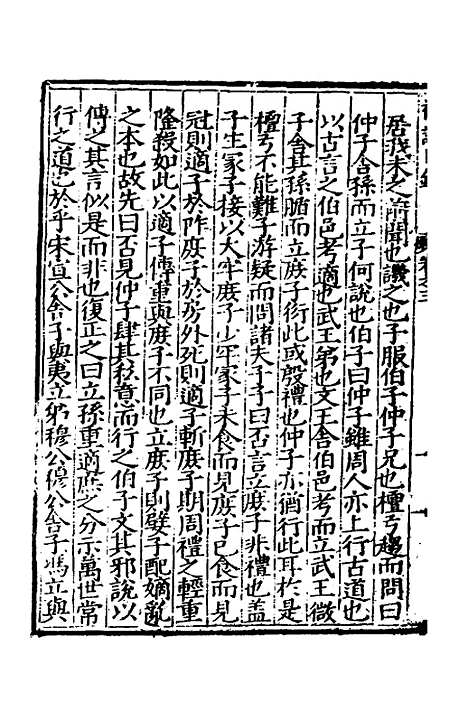 居我未之前聞也譏之也子服伯子仲子兄也檀弓趨而問曰
仲子舍孫而立子何說也伯子曰仲子雖周人亦上行古道也
以古言之伯邑考適也武王弟也文王舍伯邑考而立武王微
子舍其孫腯而立庶子衍此或殷禮也仲子亦猶行此耳於是
檀弓不能難子游疑而問諸夫子子曰否言立庶子非禮也蓋
子生冡子接以大牢庶子少牢冡子未食而見庶子已食而見
冠則適子於阼庶子於房外死則適子斬庶子期周禮之輕重
隆殺如此以適子傳重與庶子不同也立庶子則孽子配嫡亂
之本也故先曰否見仲子肆其私意而行之伯子文其邪說以
傳之其言似是而非也復正之曰立孫重適庶之分示萬世常
行之道也於乎宋宣公舍子與夷立弟穆公穆公舍子馮立與